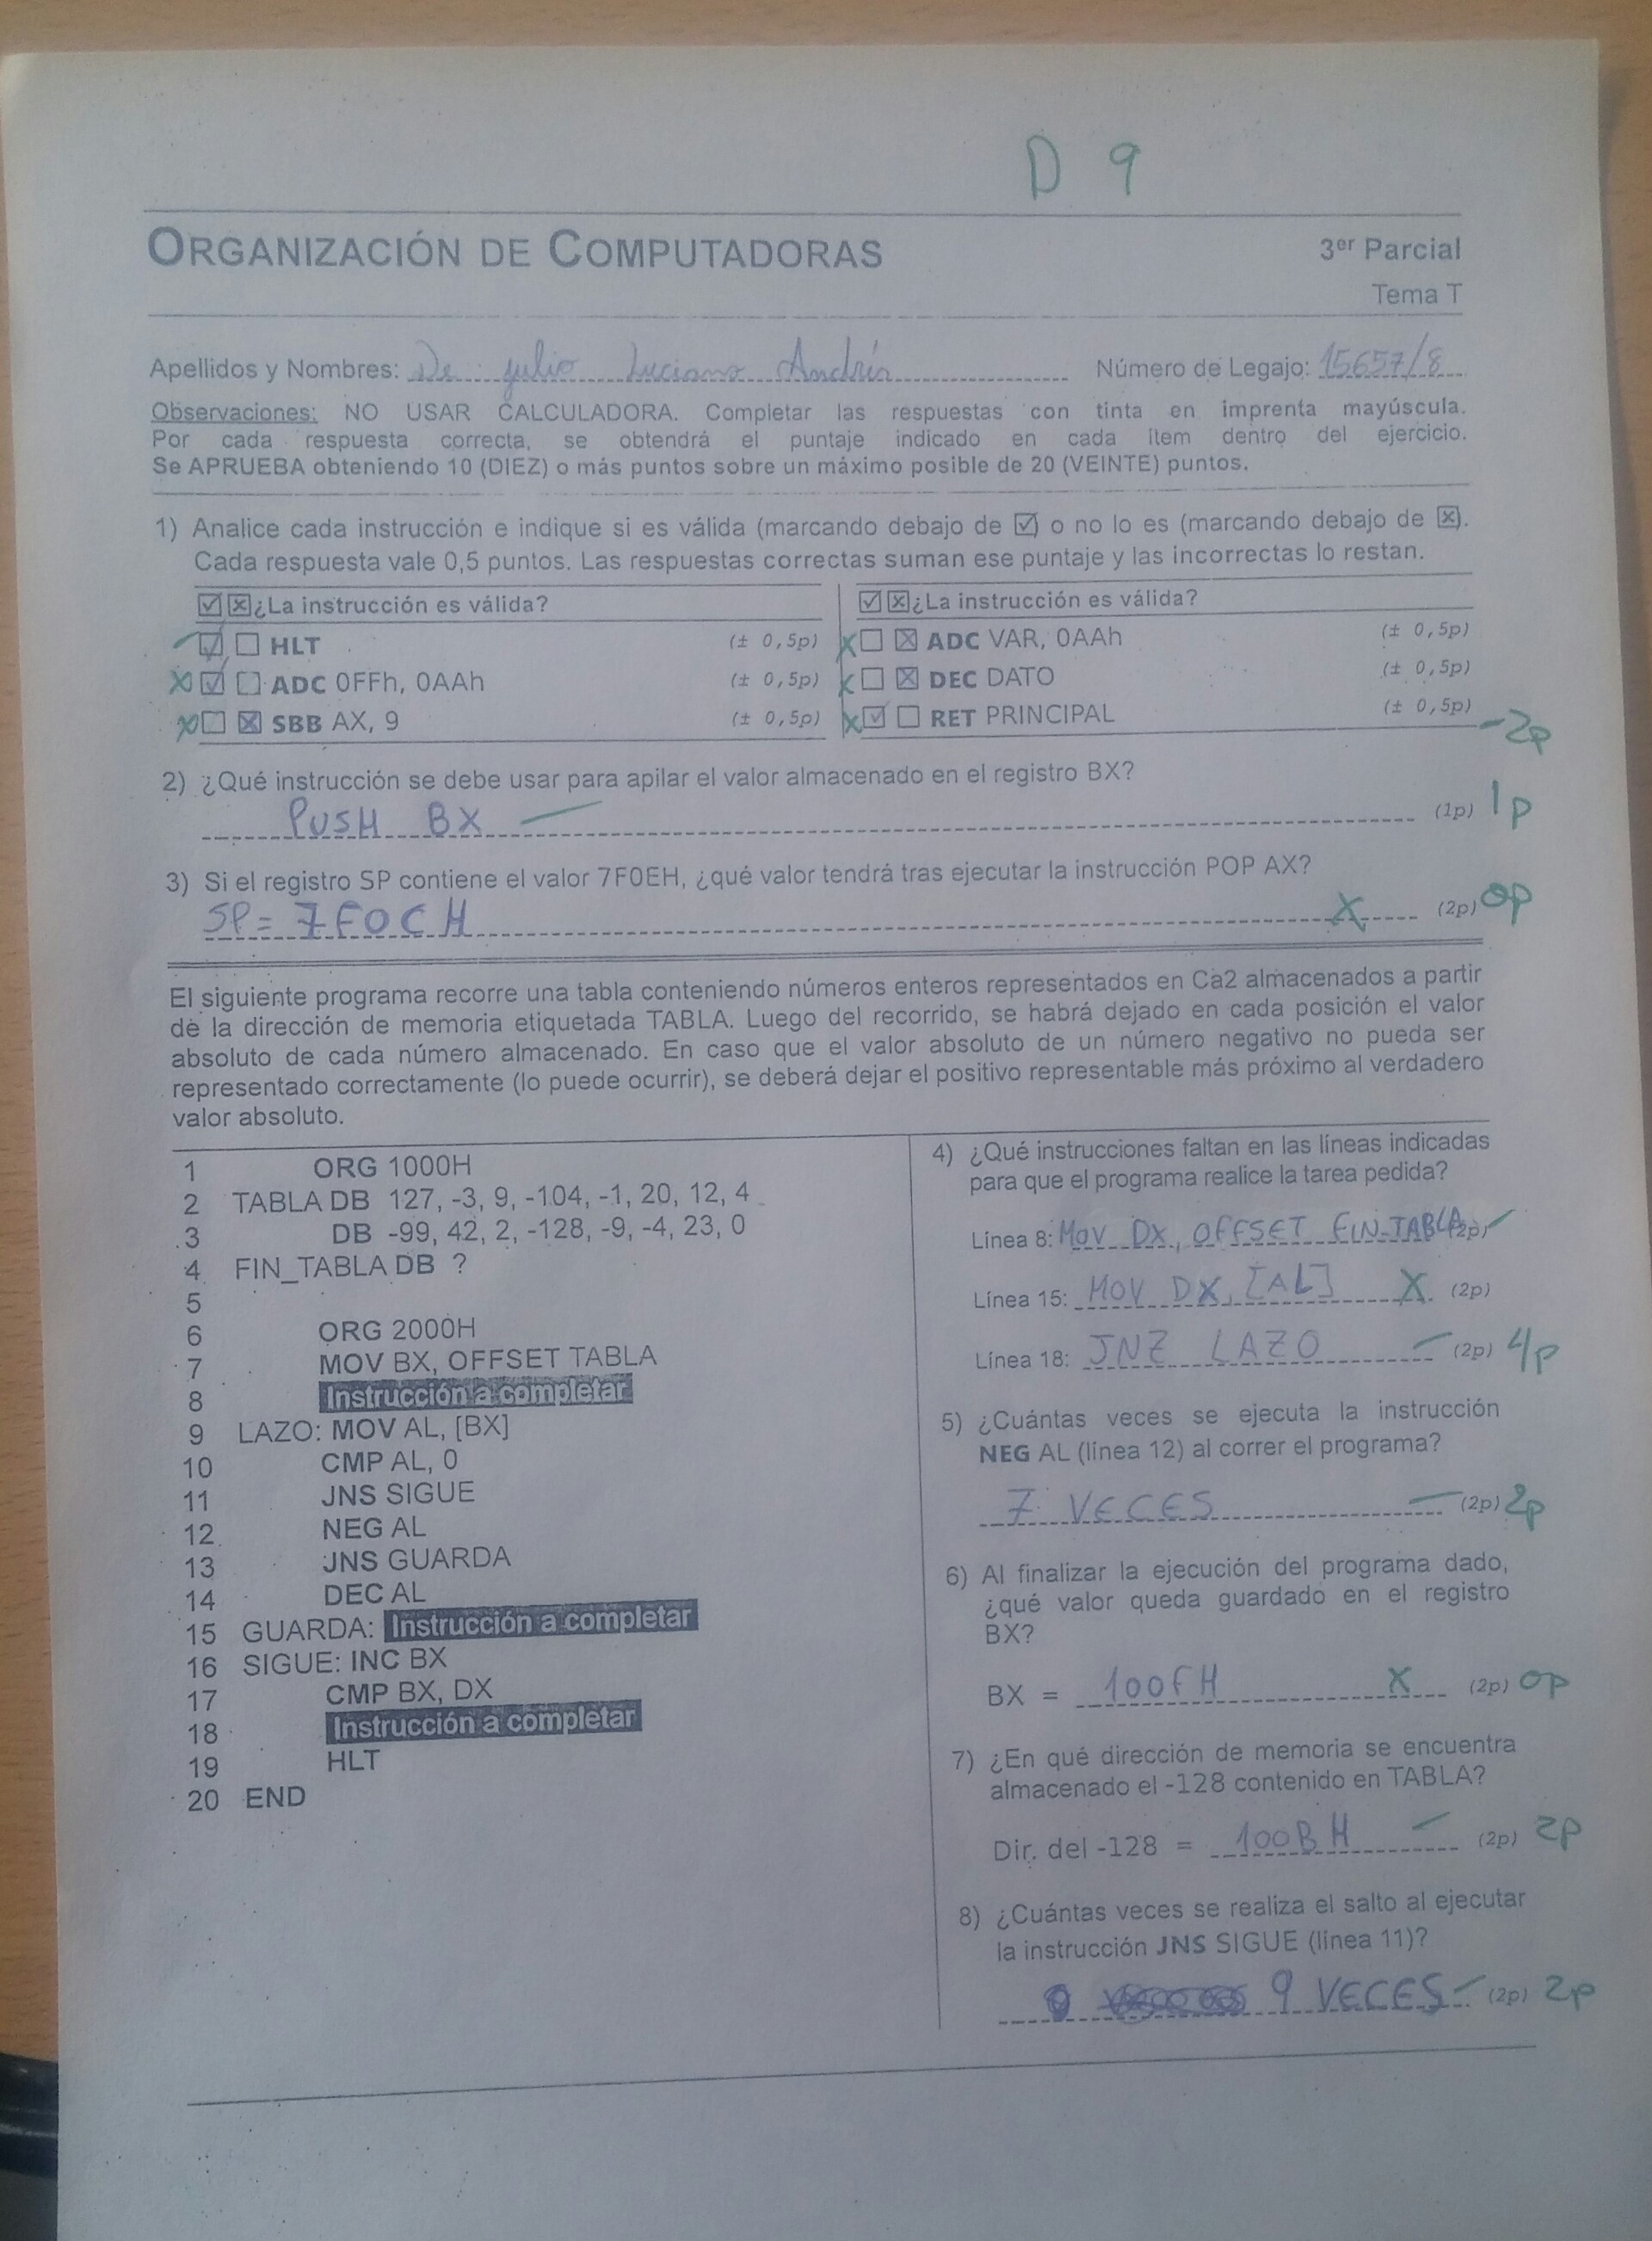 D 9
ORGANIZACIÓN DE COMPUTADORAS
3er Parcial
Tema T
Apellidos y Nombres: De julio Luciano Andrés Número de Legajo: 15657/8
Observaciones: NO USAR CALCULADORA. Completar las respuestas con tinta en imprenta mayúscula.
Por cada respuesta correcta, se obtendrá el puntaje indicado en cada ítem dentro del ejercicio.
Se APRUEBA obteniendo 10 (DIEZ) o más puntos sobre un máximo posible de 20 (VEINTE) puntos.
1) Analice cada instrucción e indique si es válida (marcando debajo de ☑ o no lo es (marcando debajo de ☒).
Cada respuesta vale 0,5 puntos. Las respuestas correctas suman ese puntaje y las incorrectas lo restan.
☑☒¿La instrucción es válida?
☑ ☐ HLT (± 0,5p)
X ☑ ☐ ADC 0FFh, 0AAh (± 0,5p)
X ☐ ☒ SBB AX, 9 (± 0,5p)
☑☒¿La instrucción es válida?
X ☐ ☒ ADC VAR, 0AAh (± 0,5p)
X ☐ ☒ DEC DATO (± 0,5p)
X ☑ ☐ RET PRINCIPAL (± 0,5p)
-2p
2) ¿Qué instrucción se debe usar para apilar el valor almacenado en el registro BX?
PUSH BX (1p) 1p
3) Si el registro SP contiene el valor 7F0EH, ¿qué valor tendrá tras ejecutar la instrucción POP AX?
SP= 7F0CH X (2p) 0p
El siguiente programa recorre una tabla conteniendo números enteros representados en Ca2 almacenados a partir
de la dirección de memoria etiquetada TABLA. Luego del recorrido, se habrá dejado en cada posición el valor
absoluto de cada número almacenado. En caso que el valor absoluto de un número negativo no pueda ser
representado correctamente (lo puede ocurrir), se deberá dejar el positivo representable más próximo al verdadero
valor absoluto.
1 ORG 1000H
2 TABLA DB 127, -3, 9, -104, -1, 20, 12, 4
3 DB -99, 42, 2, -128, -9, -4, 23, 0
4 FIN_TABLA DB ?
5
6 ORG 2000H
7 MOV BX, OFFSET TABLA
8 Instrucción a completar
9 LAZO: MOV AL, [BX]
10 CMP AL, 0
11 JNS SIGUE
12 NEG AL
13 JNS GUARDA
14 DEC AL
15 GUARDA: Instrucción a completar
16 SIGUE: INC BX
17 CMP BX, DX
18 Instrucción a completar
19 HLT
20 END
4) ¿Qué instrucciones faltan en las líneas indicadas
para que el programa realice la tarea pedida?
Línea 8: MOV DX, OFFSET FIN_TABLA (2p)
Línea 15: MOV DX, [AL] X (2p)
Línea 18: JNZ LAZO (2p) 4p
5) ¿Cuántas veces se ejecuta la instrucción
NEG AL (línea 12) al correr el programa?
7 VECES (2p) 2p
6) Al finalizar la ejecución del programa dado,
¿qué valor queda guardado en el registro
BX?
BX = 100FH X (2p) 0p
7) ¿En qué dirección de memoria se encuentra
almacenado el -128 contenido en TABLA?
Dir. del -128 = 100B H (2p) 2p
8) ¿Cuántas veces se realiza el salto al ejecutar
la instrucción JNS SIGUE (línea 11)?
9 VECES (2p) 2p